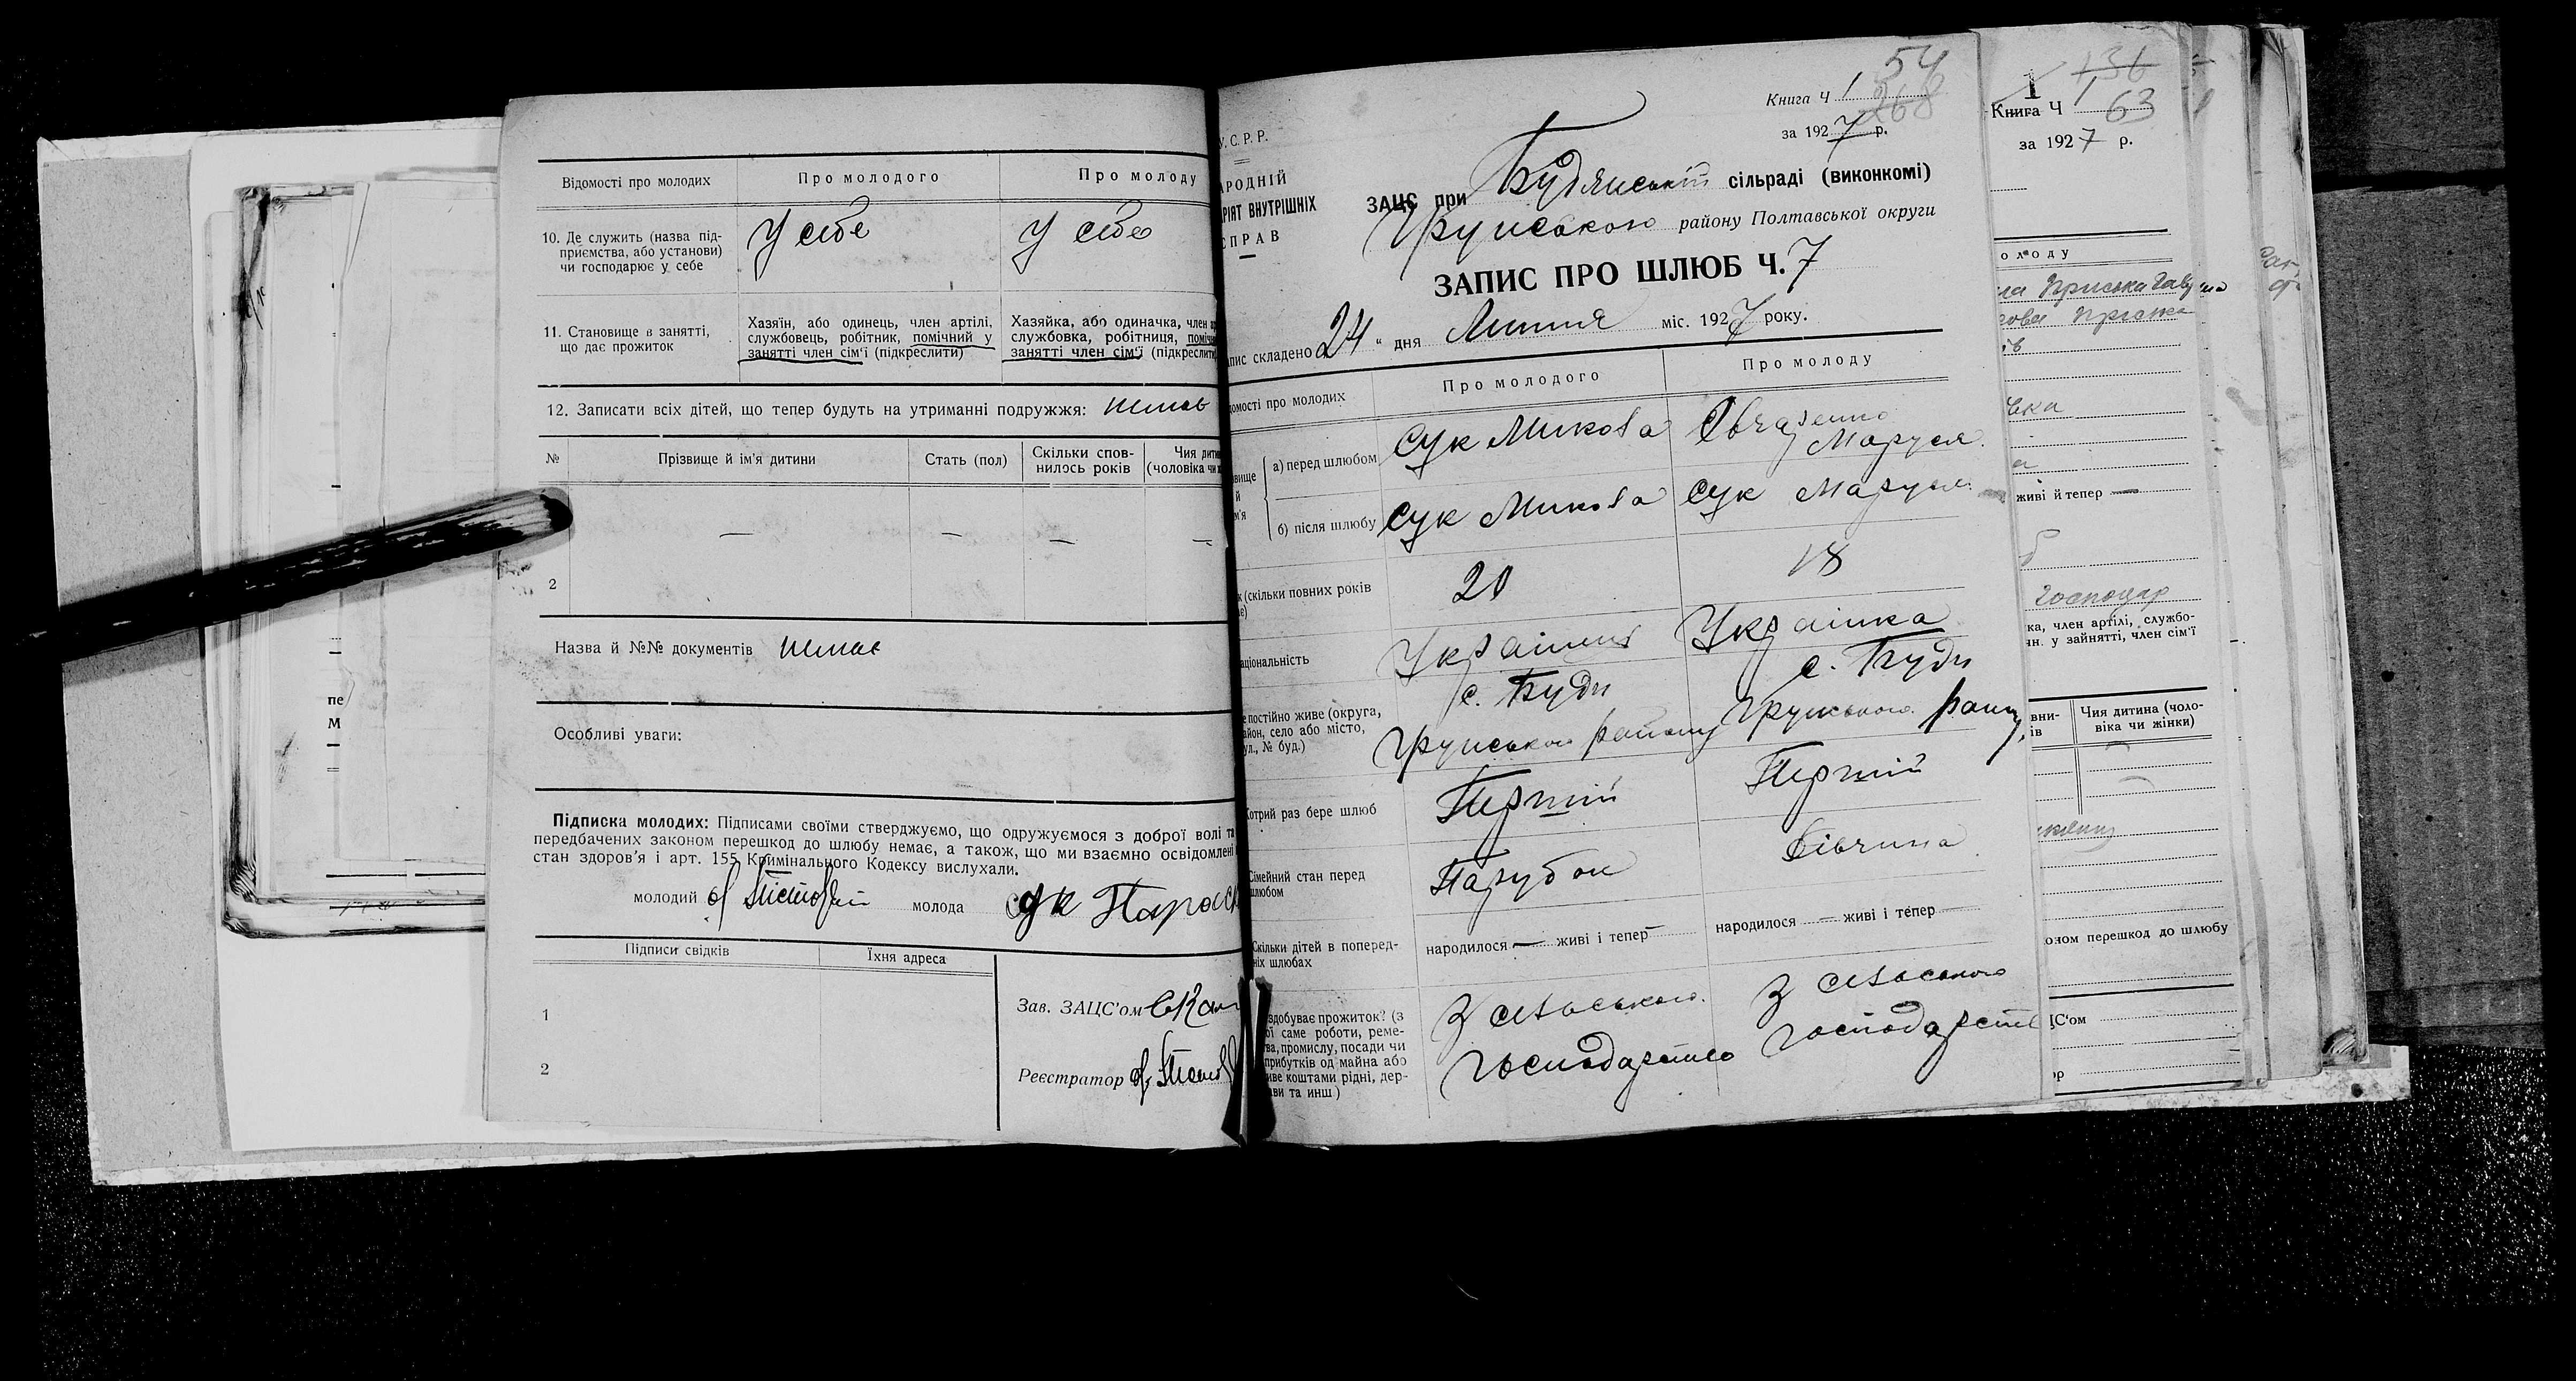 Відомості про молодих
Про молодого
Про молоду
10. Де служить (назва під-
приємства, або установи)
чи господарює у себе
У себе
У себе
11. Становище в занятті,
що дає прожиток
Хазяїн, або одинець, член артілі,
службовець, робітник, помічний у
занятті член сім'ї (підкреслити)
Хазяйка, або одиначка, член
службовка, робітниця,
занятті член сім'ї (підкреслити
12. Записати всіх дітей, що тепер будуть на утриманні подружжя: немає
№
Прізвище й ім'я дитини
Стать (пол)
Скільки спов-
нилось років
Чия дити
(чоловіка чи
2
Назва й №№ документів немає
Особливі уваги:
Підписка молодих: Підписами своїми стверджуємо, що одружуємося з доброї волі та
передбачених законом перешкод до шлюбу немає, а також, що ми взаємно освідомлені
стан здоров'я і арт. 155 Кримінального Кодексу вислухали.
молодий
молода Сук Параск
Підписи свідків
Їхня адреса
1
2
Зав. ЗАЦС'ом
Реєстратор
У.С.Р.Р.
АРОДНІЙ
РІЯТ ВНУТРІШНІХ
СПРАВ
54
268
Книга Ч 1
за 1927 р.
ЗАЦС при Будянській сільраді (виконкомі)
Грунського району Полтавської округи
ЗАПИС ПРО ШЛЮБ Ч. 7
пис складено 24 " дня Липня міс. 1927 року.
домості про молодих
Про молодого
Про молоду
вище
й
м'я
а) перед шлюбом
Сук Микола
Маруся
б) після шлюбу
Сук Микола
Сук Маруся
к (скільки повних років
20
18
аціональність
Українець
Українка
е постійно живе (округа,
айон, село або місто,
ул., № буд.)
с. Буди
Грунського району
с. Буди
Грунського
Котрий раз бере шлюб
Перший
Перший
Сімейний стан перед
шлюбом
Парубок
Дівчина
Скільки дітей в поперед-
ніх шлюбах
народилося — живі і тепер —
народилося — живі і тепер —
здобуває прожиток? (з
ої саме роботи, реме-
тва, промислу, посади чи
прибутків од майна або
иве коштами рідні, дер-
ави та инш)
З сельського
господарства
З сельського
136
1
Книга Ч 1
63
за 1927 р.
олоду
живі й тепер —
Господар
ка, член артілі, службо-
чн. у зайнятті, член сім'ї
вни-
ів
Чия дитина (чоло-
віка чи жінки)
оном перешкод до шлюбу
ЦС'ом
ор
пе
М